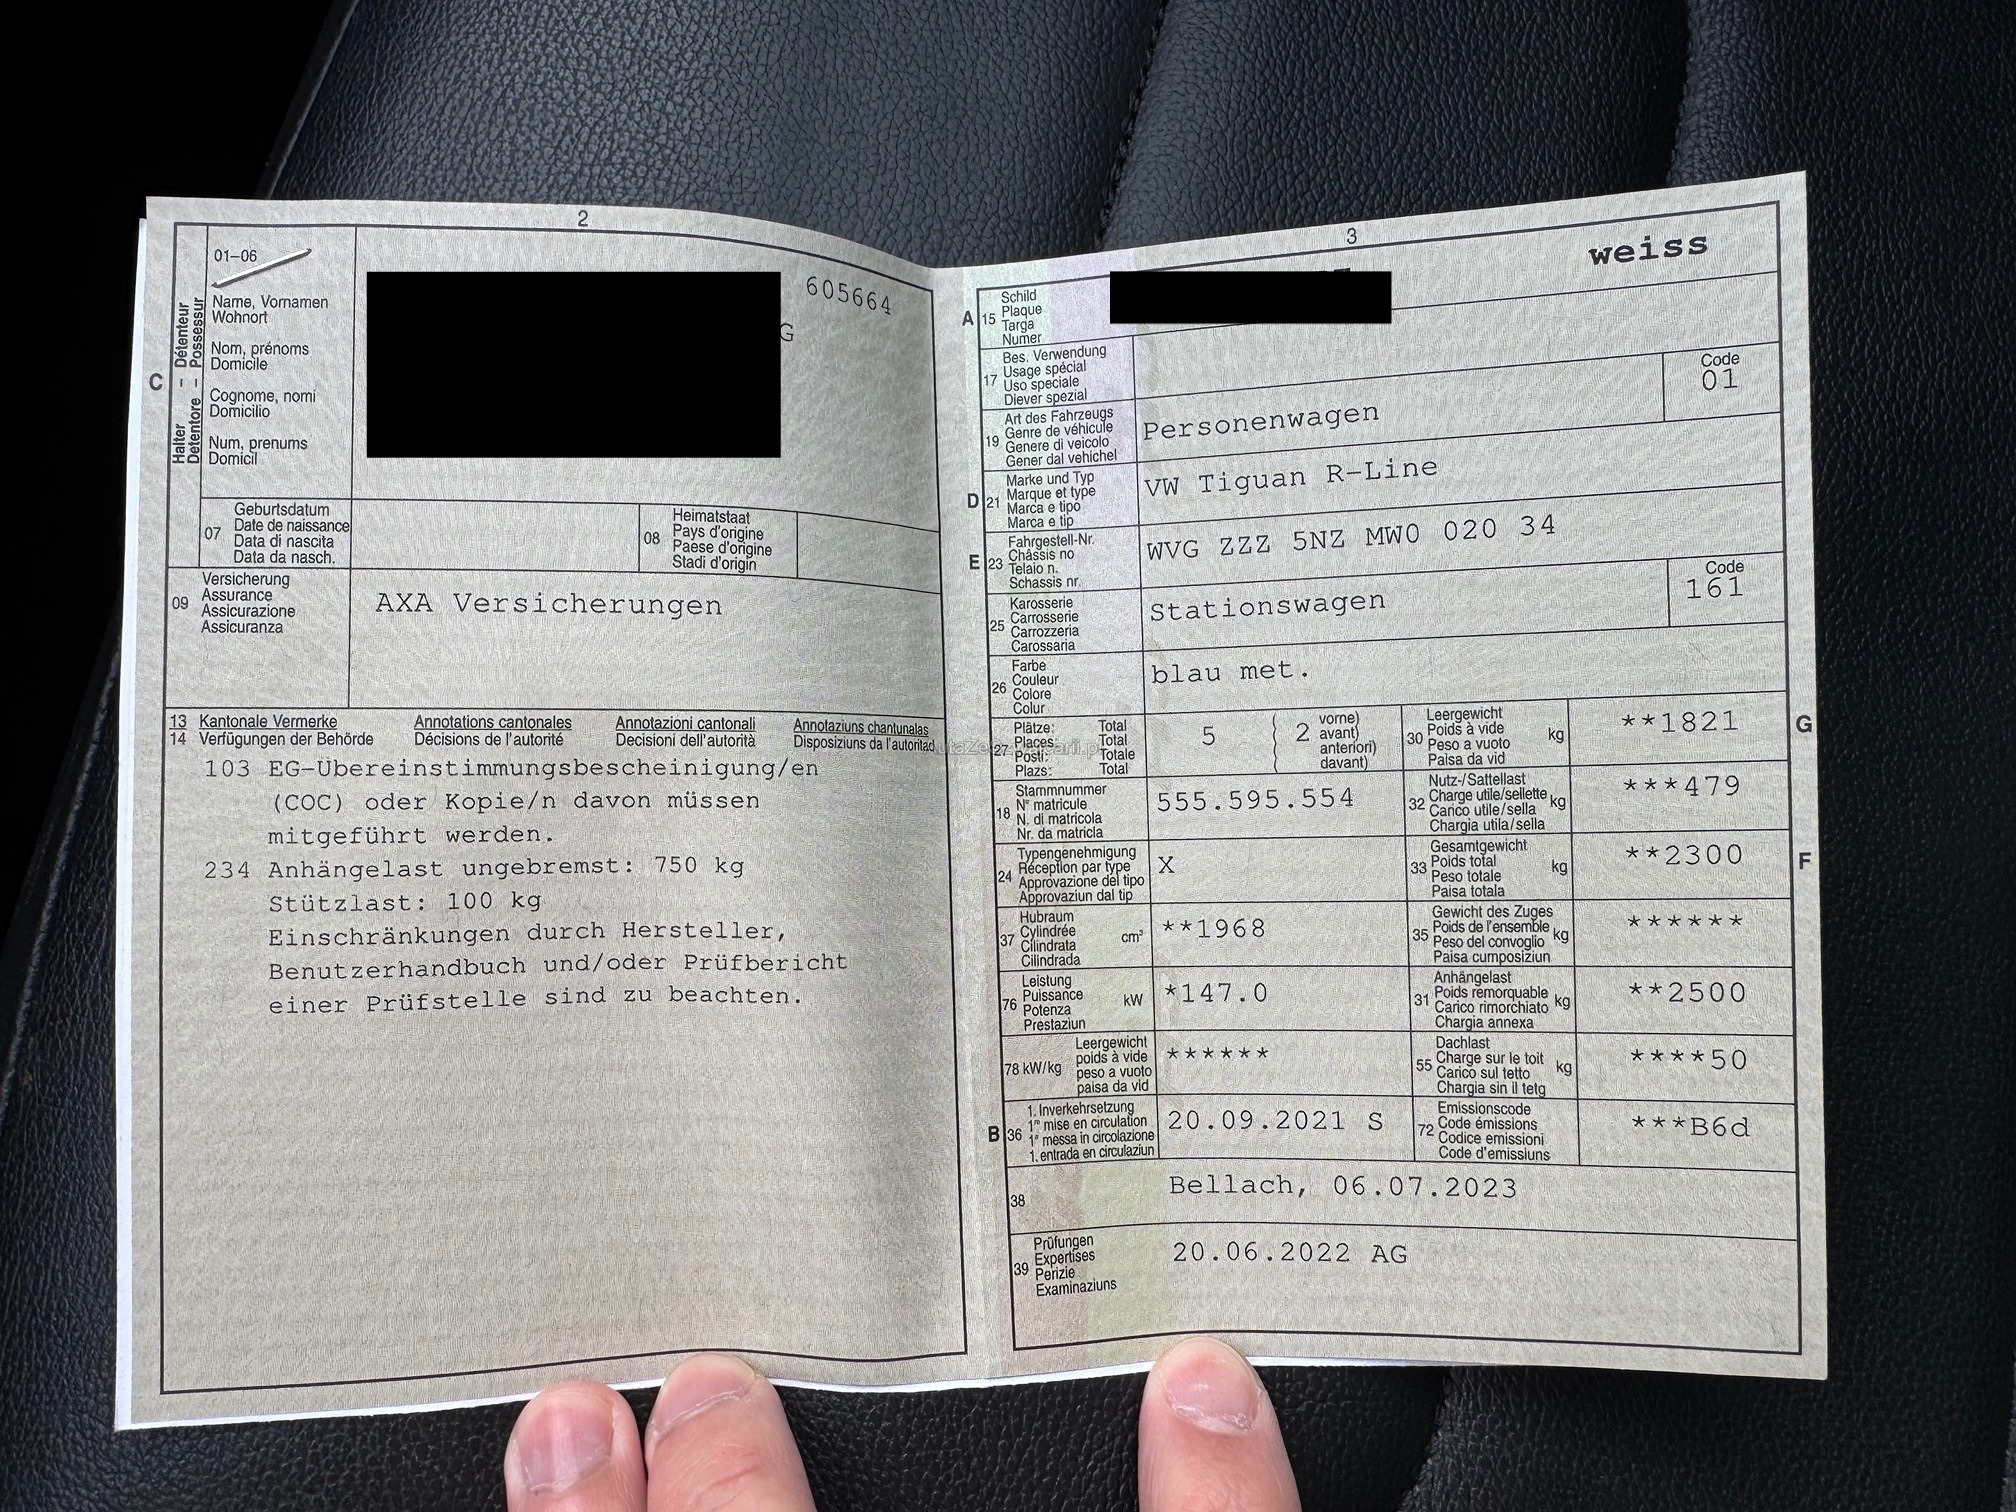 2
01–06
Name, Vornamen
Wohnort
Nom, prénoms
Domicile
Cognome, nomi
Domicilio
Num, prenums
Domicil
C
Halter – Détenteur
Detentore – Possessur
605664
G
07
Geburtsdatum
Date de naissance
Data di nascita
Data da nasch.
08
Heimatstaat
Pays d'origine
Paese d'origine
Stadi d'origin
09
Versicherung
Assurance
Assicurazione
Assicuranza
AXA Versicherungen
13 Kantonale Vermerke Annotations cantonales Annotazioni cantonali Annotaziuns chantunalas
14 Verfügungen der Behörde Décisions de l'autorité Decisioni dell'autorità Disposiziuns da l'autoritad
103 EG-Übereinstimmungsbescheinigung/en
(COC) oder Kopie/n davon müssen
mitgeführt werden.
234 Anhängelast ungebremst: 750 kg
Stützlast: 100 kg
Einschränkungen durch Hersteller,
Benutzerhandbuch und/oder Prüfbericht
einer Prüfstelle sind zu beachten.
3
weiss
A 15
Schild
Plaque
Targa
Numer
17
Bes. Verwendung
Usage spécial
Uso speciale
Diever spezial
19
Art des Fahrzeugs
Genre de véhicule
Genere di veicolo
Gener dal vehichel
Personenwagen
Code
01
D 21
Marke und Typ
Marque et type
Marca e tipo
Marca e tip
VW Tiguan R-Line
E 23
Fahrgestell-Nr.
Châssis no
Telaio n.
Schassis nr.
WVG ZZZ 5NZ MW0 020 34
25
Karosserie
Carrosserie
Carrozzeria
Carossaria
Stationswagen
Code
161
26
Farbe
Couleur
Colore
Colur
blau met.
27
Plätze: Total
Places: Total
Posti: Totale
Plazs: Total
5
2
vorne)
avant)
anteriori)
davant)
30
Leergewicht
Poids à vide
Peso a vuoto
Paisa da vid
kg
**1821
G
18
Stammnummer
N° matricule
N. di matricola
Nr. da matricla
555.595.554
32
Nutz-/Sattellast
Charge utile/sellette
Carico utile/sella
Chargia utila/sella
kg
***479
24
Typengenehmigung
Réception par type
Approvazione del tipo
Approvaziun dal tip
X
33
Gesamtgewicht
Poids total
Peso totale
Paisa totala
kg
**2300
F
37
Hubraum
Cylindrée
Cilindrata
Cilindrada
cm³
**1968
35
Gewicht des Zuges
Poids de l'ensemble
Peso del convoglio
Paisa cumposiziun
kg
******
76
Leistung
Puissance
Potenza
Prestaziun
kW
*147.0
31
Anhängelast
Poids remorquable
Carico rimorchiato
Chargia annexa
kg
**2500
78 kW/kg
Leergewicht
poids à vide
peso a vuoto
paisa da vid
******
55
Dachlast
Charge sur le toit
Carico sul tetto
Chargia sin il tetg
kg
****50
B 36
1. Inverkehrsetzung
1re mise en circulation
1a messa in circolazione
1. entrada en circulaziun
20.09.2021 S
72
Emissionscode
Code émissions
Codice emissioni
Code d'emissiuns
***B6d
38
Bellach, 06.07.2023
39
Prüfungen
Expertises
Perizie
Examinaziuns
20.06.2022 AG